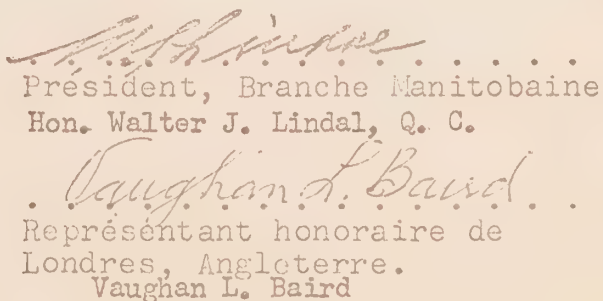 Président, Branche Manitobaine
Hon. Walter J. Lindal, Q. C.
Vaughan L. Baird
Représéntant honoraire de
Londres, Angleterre.
Vaughan L. Baird